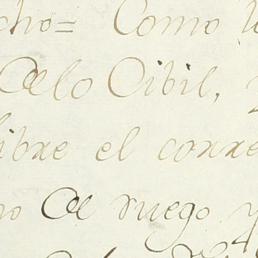 cho= Como
de lo Cibil,
libre el corre
no de ruego y